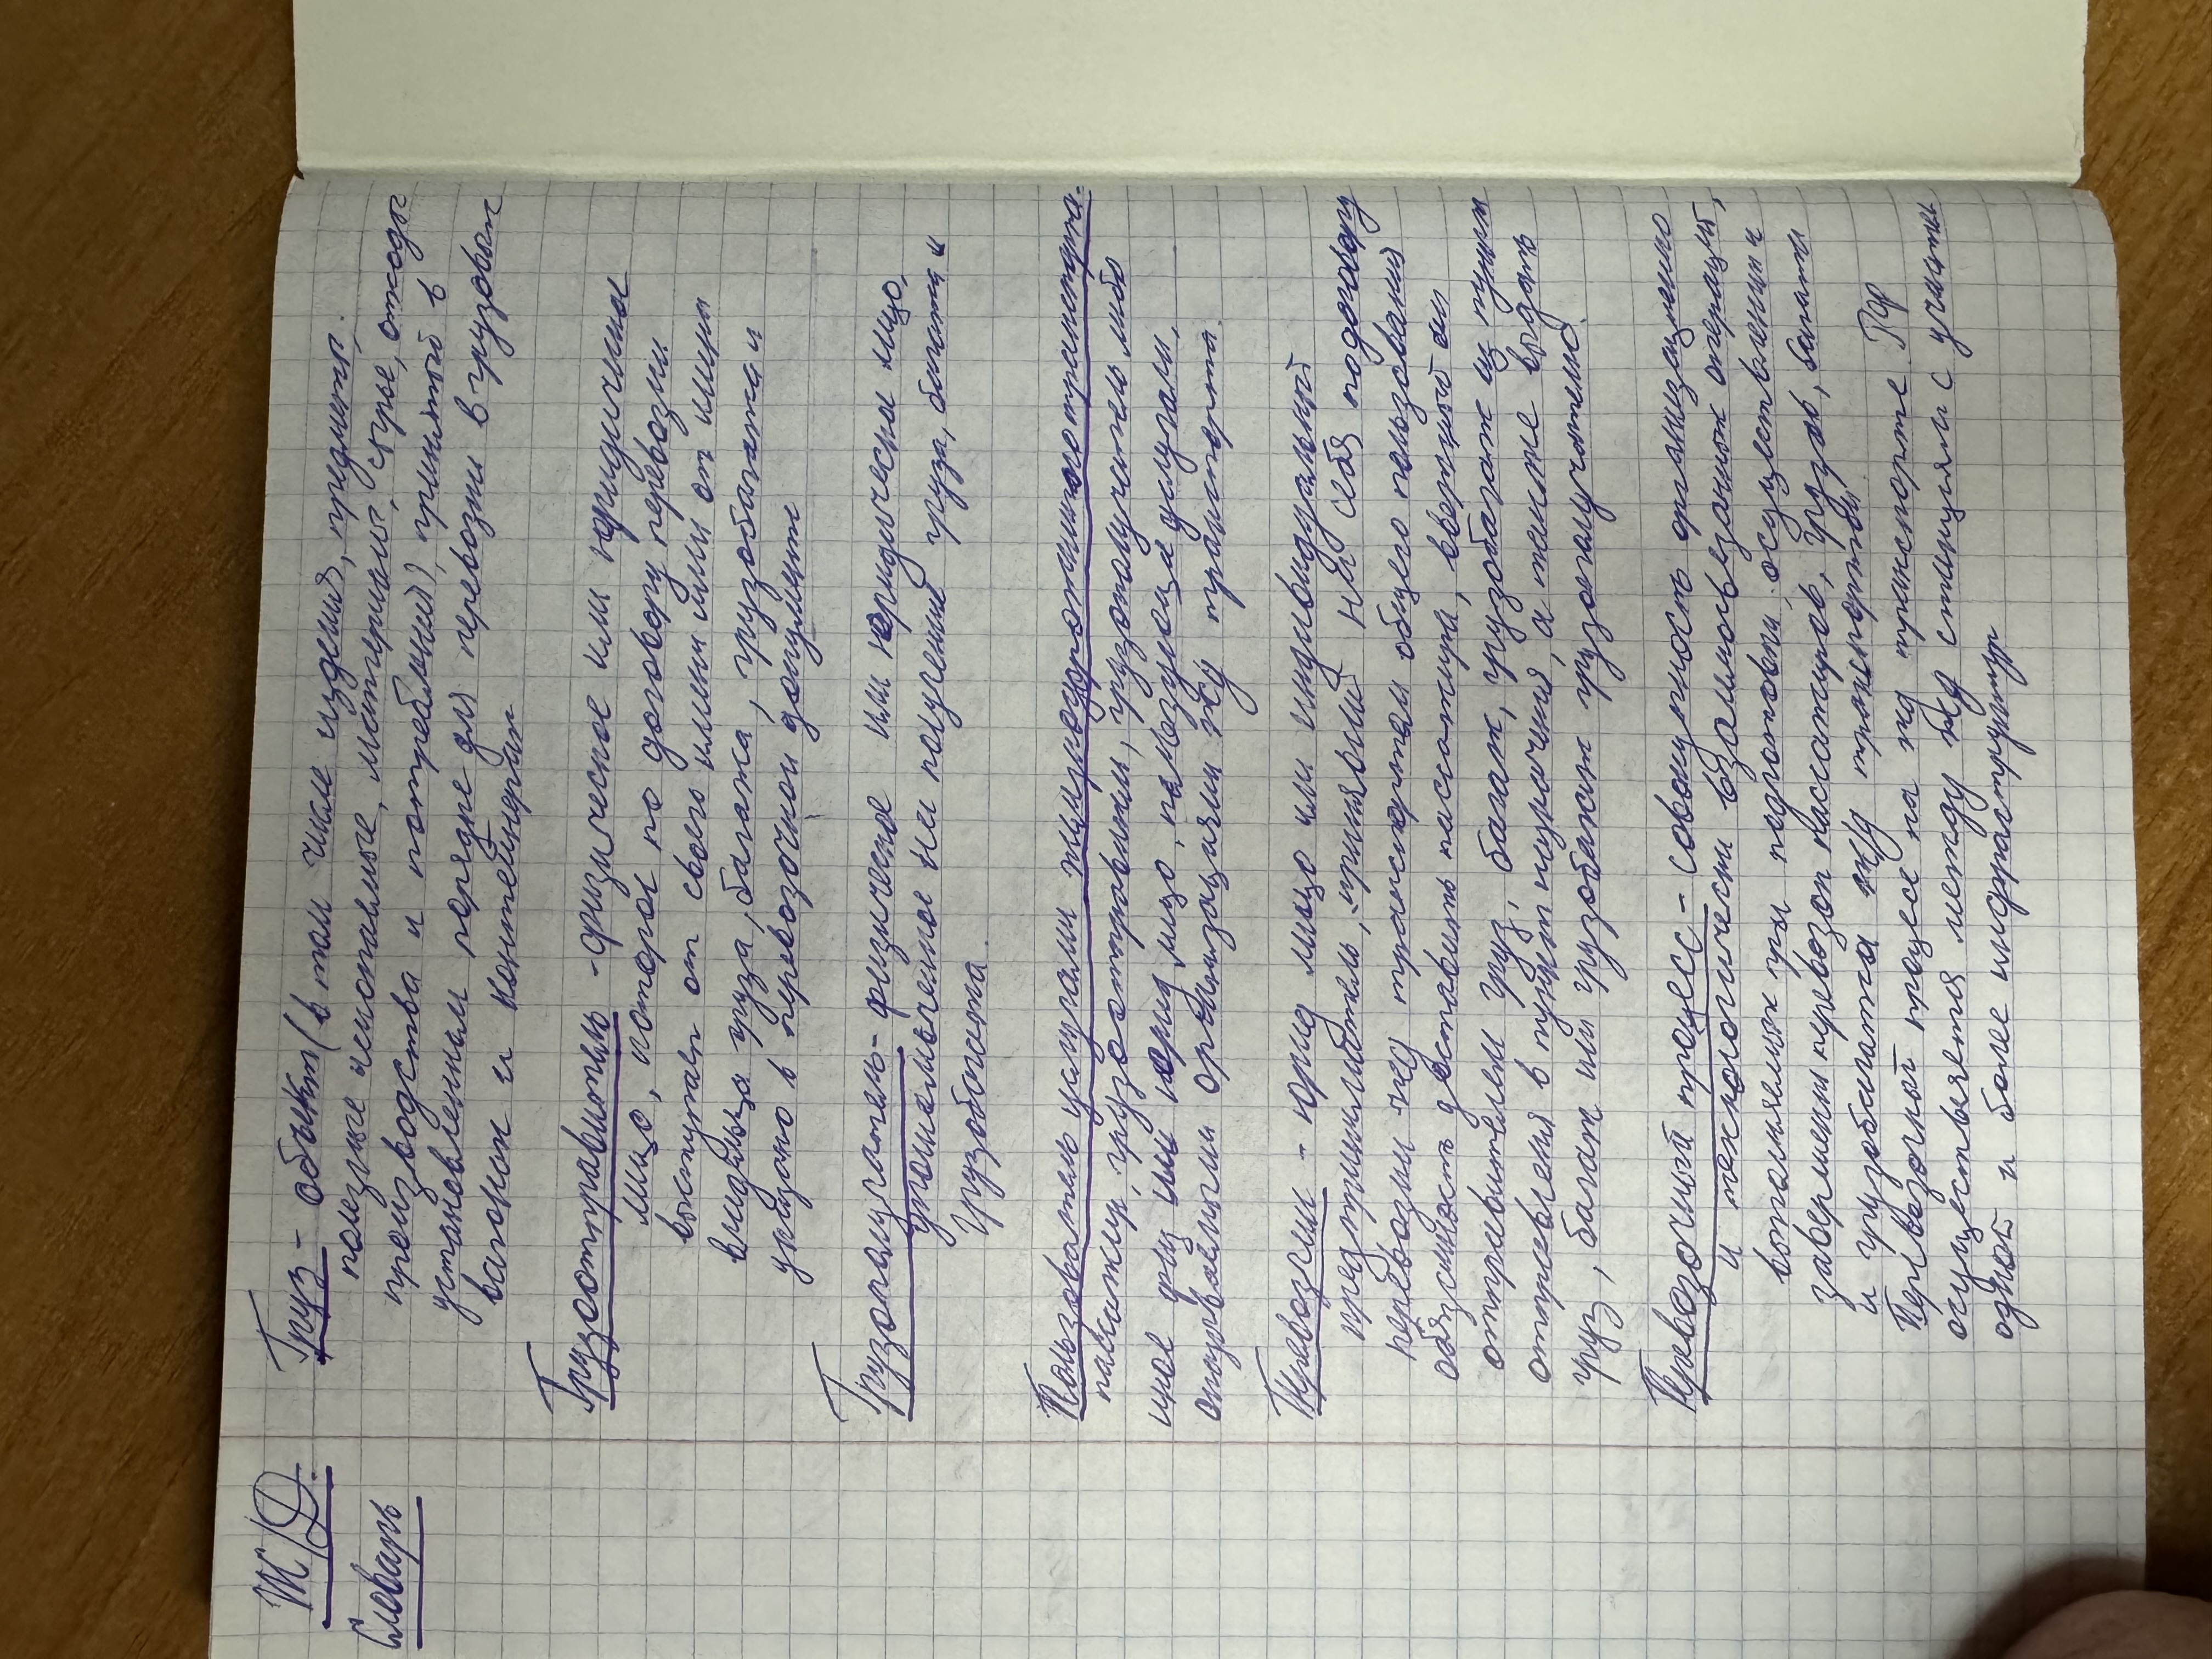 Ж/Д.
Словарь
Груз - объект (в том числе изделия, предметы,
полезные ископаемые, материалы, сырье, отходы
производства и потребления), принятый в
установленном порядке для перевозки в грузовых
вагонах и контейнерах
Грузоотправитель - физическое или юридическое
лицо, которое по договору перевозки
выступает от своего имени или от имени
владельца груза, багажа, грузобагажа и
указано в перевозочном документе
Грузополучатель - физическое или юридическое лицо,
упономоченное на получение груза, багажа и
грузобагажа.
Пользователь услугами железнодорожного транспорта -
пассажир, грузоотправитель, грузополучатель либо
иное физ или юрид лицо, пользующееся услугами,
оказываемыми организациями жд транспорта.
Перевозчик - юрид лицо или индивидуальный
предприниматель, принявший на себя по договору
перевозки жд транспортом общего пользования
обязанность доставить пассажира, вверенный ему
отправителем груз, багаж, грузобагаж из пункта
отправления в пункт назначения, а также выдать
груз, багаж или грузобагаж грузополучателю.
Перевозочный процесс - совокупность организационно
и технологически взаимосвязанных операций,
выполняемых при подготовке, осуществлении и
завершении перевозок пассажиров, грузов, багажа
и грузобагажа ж/д транспортом.
Перевозочный процесс на жд транспорте РФ
осуществляется между жд станциями с участием
одной и более инфраструктур